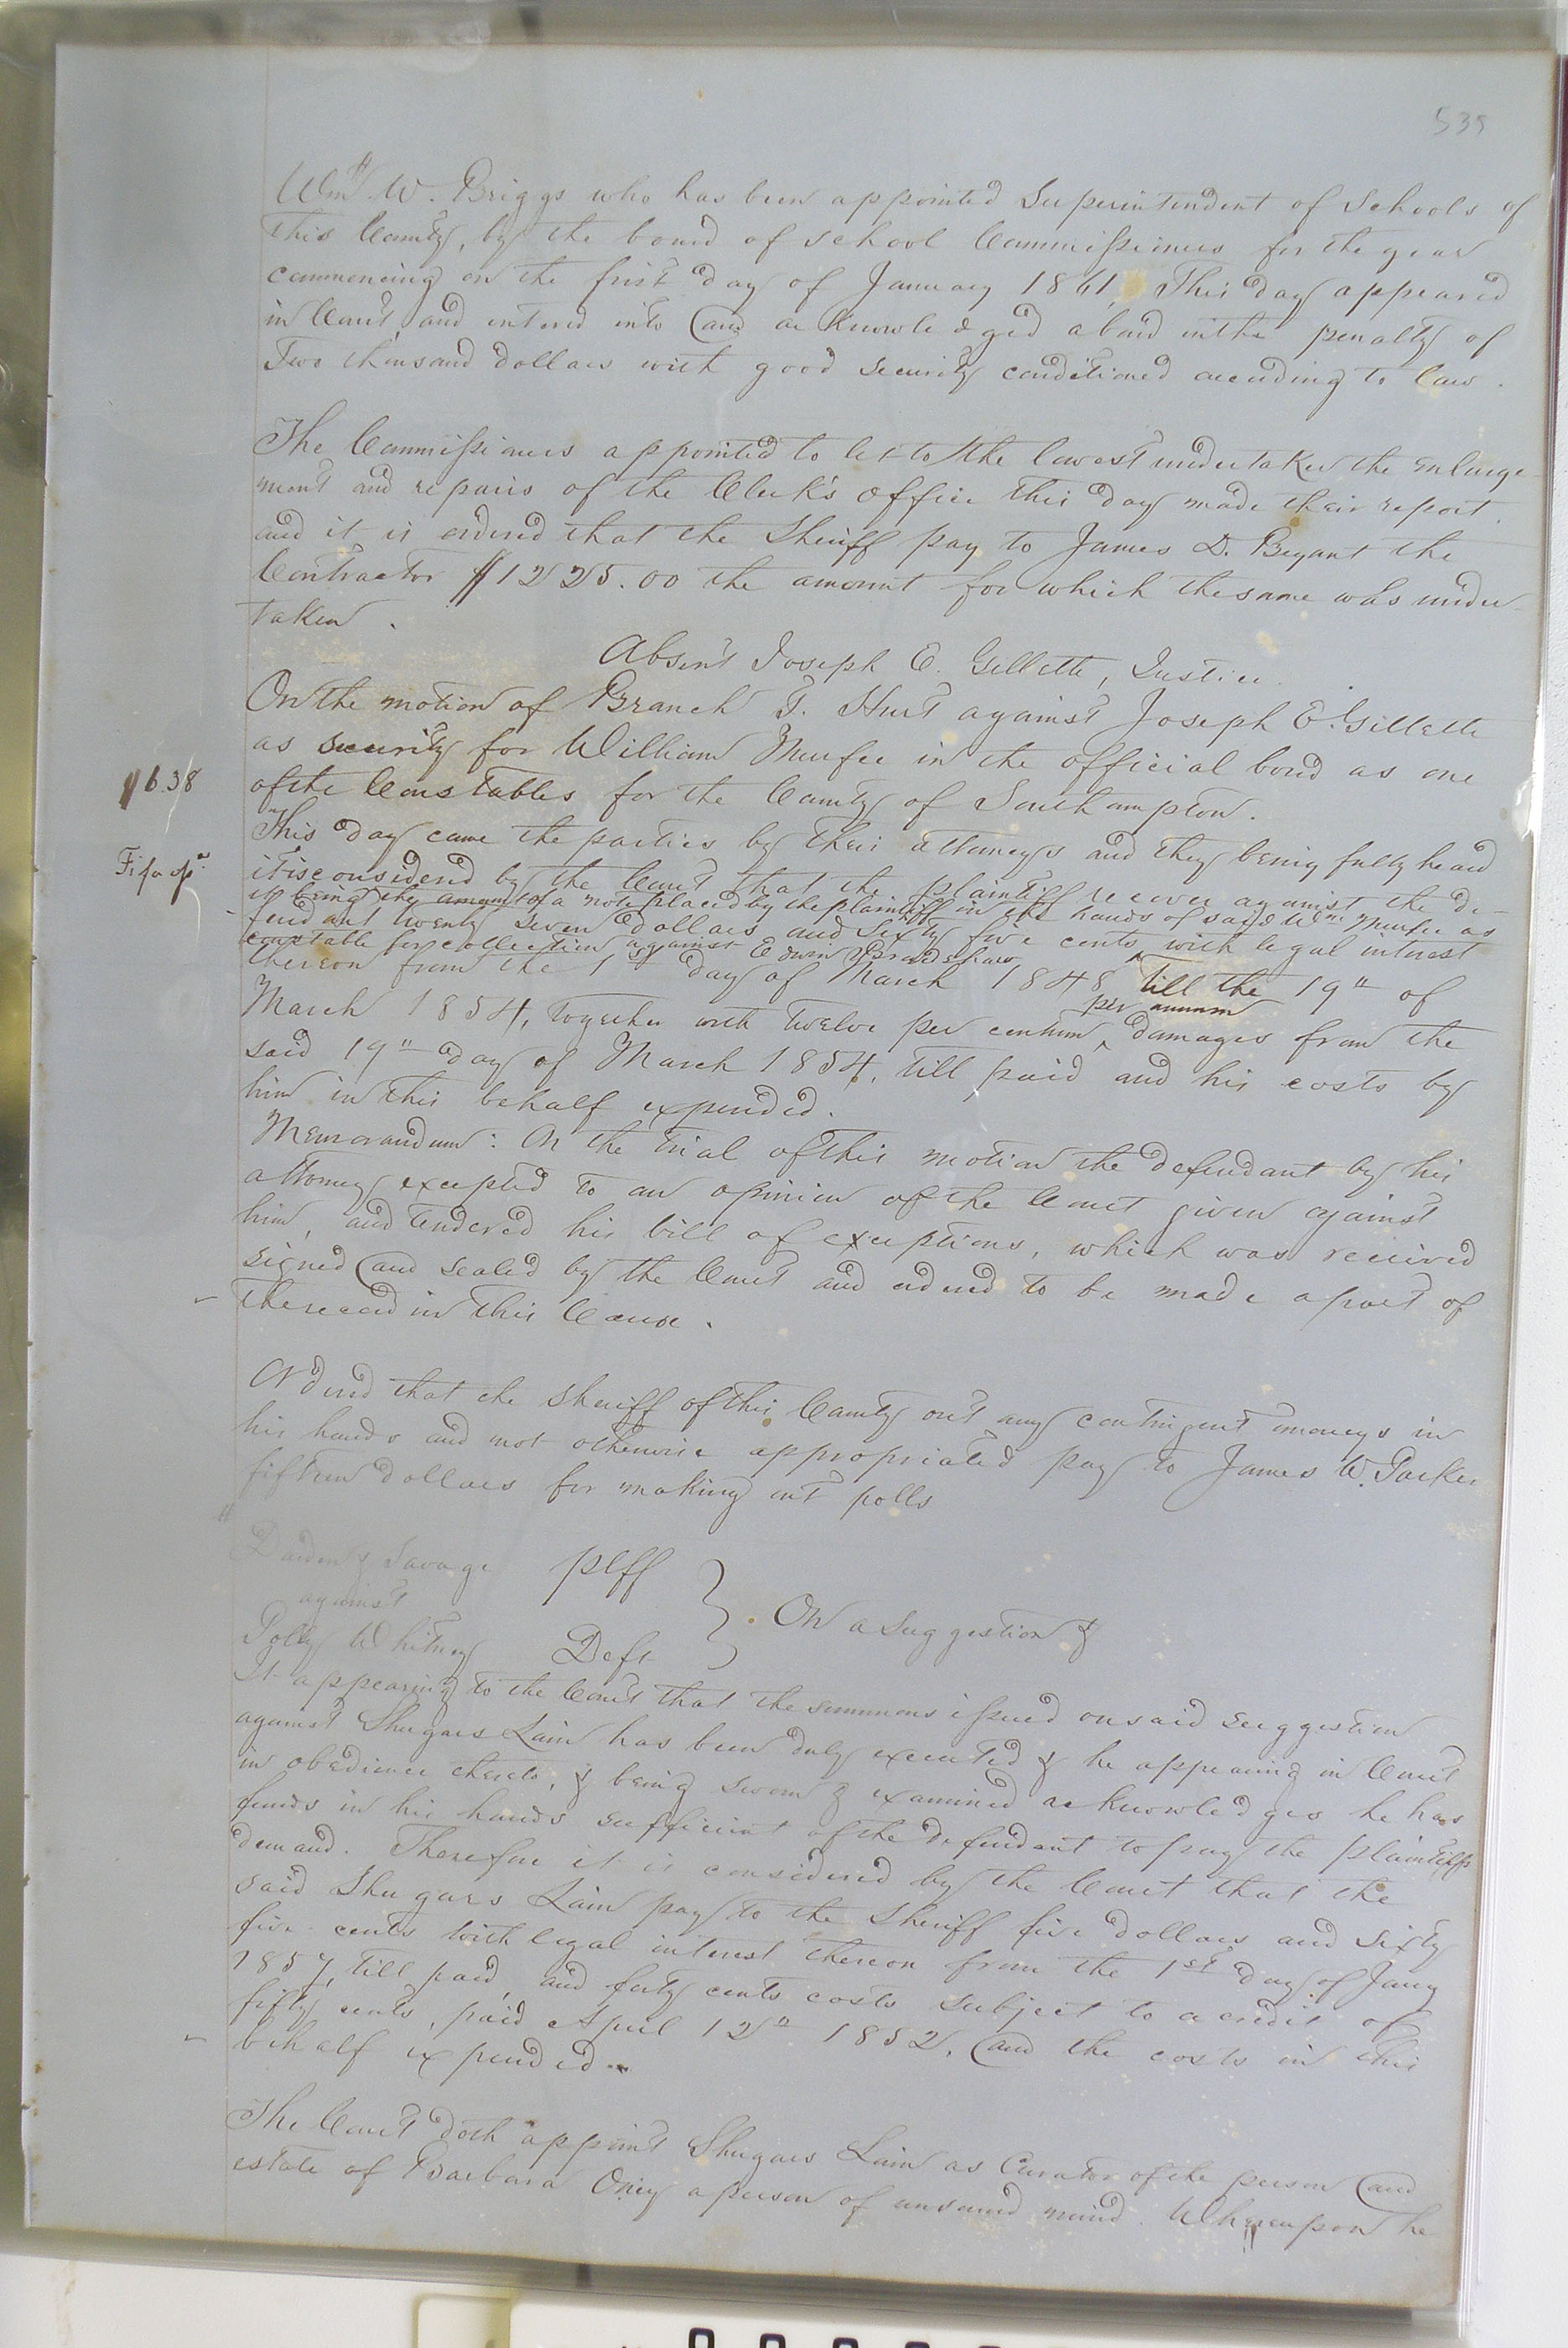 535
Wm W. Briggs who has been appointed Superintendent of Schools of
This County, by the board of School Commissioners for the year
commencing on the first day of January 1861, This day appeared
in Court and entered into and acknowledged a bond in the penalty of
Two thousand dollars with good security conditioned according to law.
The Commissioners appointed to let to the lowest undertaker the enlarge-
ment and repairs of the Clerk's office this day made their report
and it is ordered that the Sheriff pay to James D. Bryant the
Contractor $1225.00 the amount for which the same was under
taken.
Absent Joseph E. Gillette, Justice.
On the motion of Branch T. Hurt against Joseph E. Gillette
as security for William Murfee in the official bond as one
of the Constables for the County of Southampton.
$6.38
This day came the parties by their attorneys and they being fully heard
Fi fa
it is considered by the Court that the plaintiff recover against the de-
it being the amount of a note placed by the plaintiff in the hands of said Wm Murfee as
fendant twenty seven dollars and sixty five cents, with legal interest
constable for collection against Edwin Bradshaw
thereon from the 1st day of March 1848 till the 19" of
per annum
March 1854, together with twelve per centum damages from the
said 19" day of March 1854, till paid and his costs by
him in this behalf expended.
Memorandum: On the trial of this motion the defendant by his
attorney excepted to an opinion of the Court given against
him, and tendered his bill of exceptions, which was received
signed and sealed by the Court and ordered to be made a part of
the record in this Cause.
Ordered that the Sheriff of this County out any contingent moneys in
his hands and not otherwise appropriated pay to James W. Parker
fifteen dollars for making out polls
Darden & Savage Plff
against
On a Suggestion &
Polly Whitney Deft
It appearing to the Court that the summons issued on said suggestion
against Shugars Lain has been duly executed & he appearing in Court
in obedience thereto, & being sworn & examined acknowledges he has
funds in his hands sufficient of the defendant to pay the plaintiffs
demand. Therefore it is considered by the Court that the
said Shugars Lain pay to the Sheriff five dollars and sixty
five cents with legal interest thereon from the 1st day of Jany
1857, till paid, and forty cents costs subject to a credit of
fifty cents, paid April 12" 1852, and the costs in this
behalf expended.
The Court doth appoint Shugars Lain as Curator of the person and
estate of Barbara Oney a person of unsound mind. Whereupon he